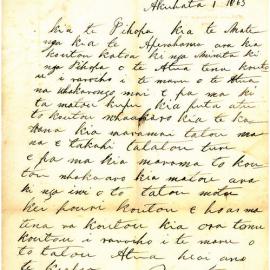 Akuhata 1 1863
Kia te Pihopa Kia te Mate
nga kia te Aperahama ara kia
koutou katoa ki nga Minita ki
nga Pihopa o te Atua tena koutou
i raro i te maru o te Atua
na whakarongo mai e pa ma ki
ta matou kupu kia puta atu
to koutou whaakaro kia te ka
wana kia marama i talou ma
na e takahi talalou ture
e pa ma kia marama to kou
tou whakaaro kia matou ara
ki nga iwi o to talou motu
kei pouri koutou e hoa ma
tena ra koutou kia ora tonu
koutou i raro i te maru o
to talou Atua heoi ano